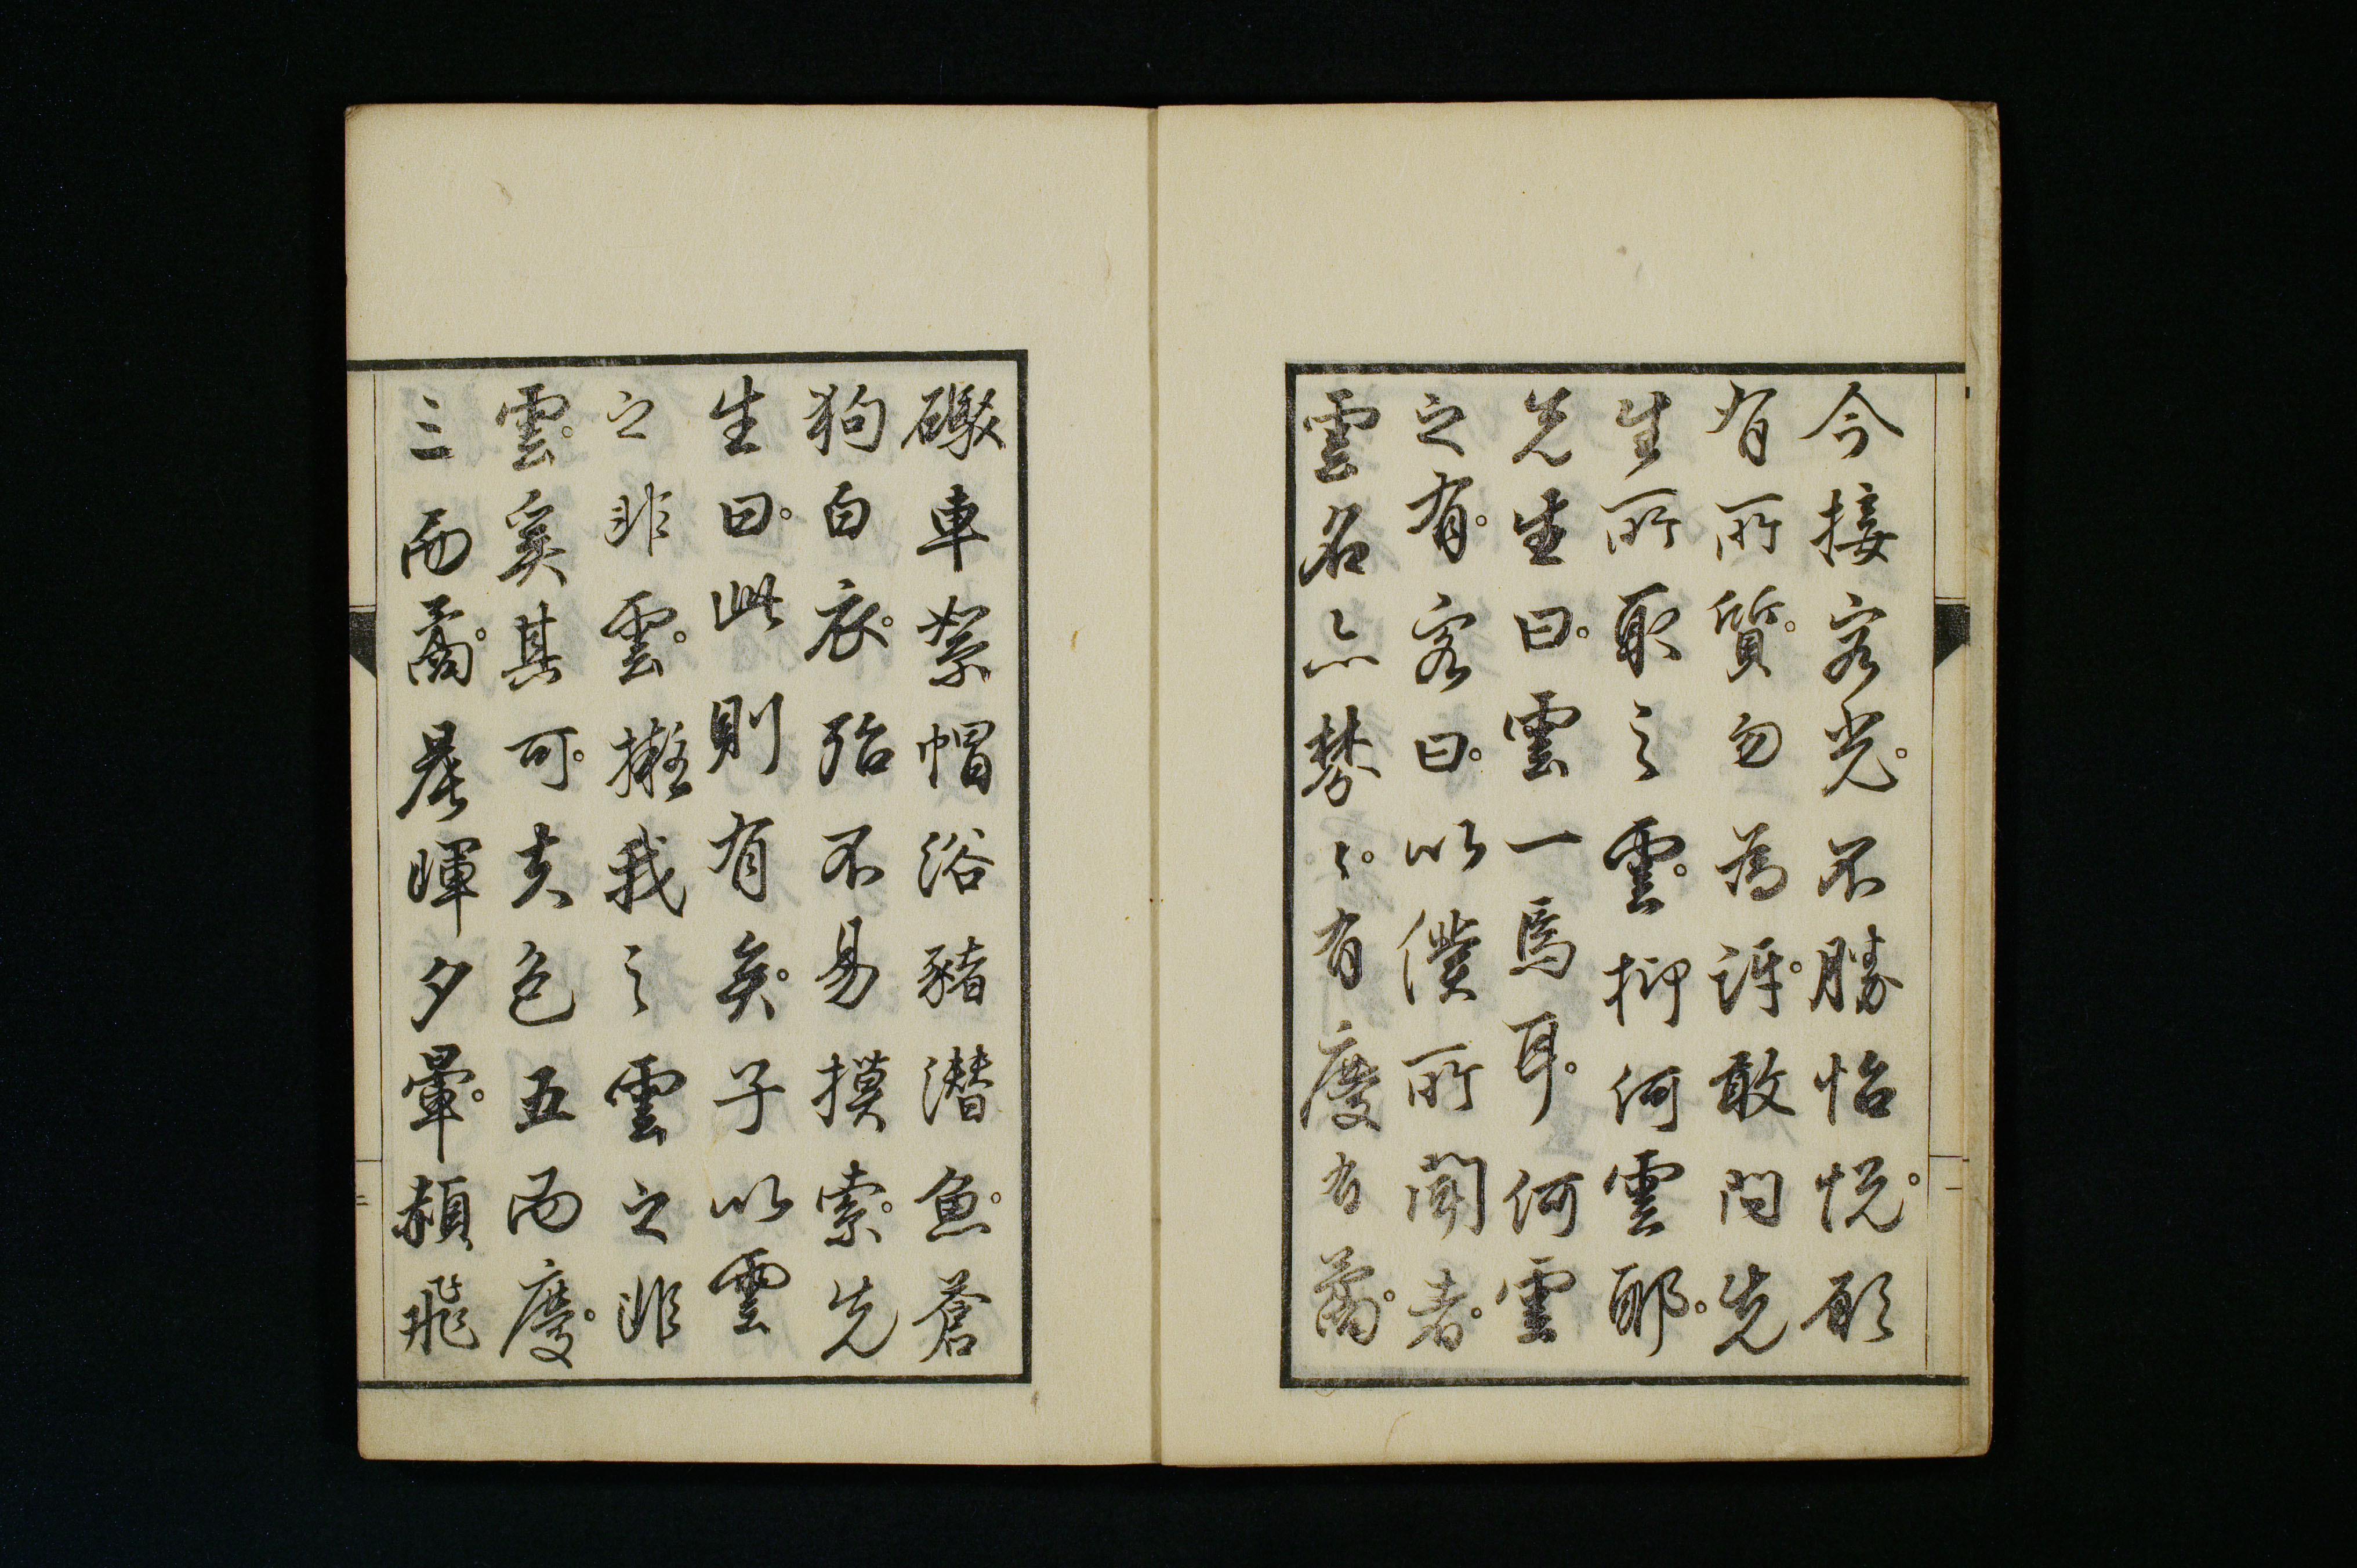 今接容光。不勝怡悦。願
有所質。勿為訝。敢問先
生所取之雲。抑何雲耶。
先生曰。雲一焉耳。何雲
之有。客曰。以僕所聞者。
雲名亦棼〻。有慶有矞。
礟車絮帽浴豬潛魚。蒼
狗白衣。殆不易摸索。先
生曰。此則有矣。子以雲
之非雲。擬我之雲之非
雲。奚其可。夫色五而慶。
三而矞。晨暉夕暈。頳飛